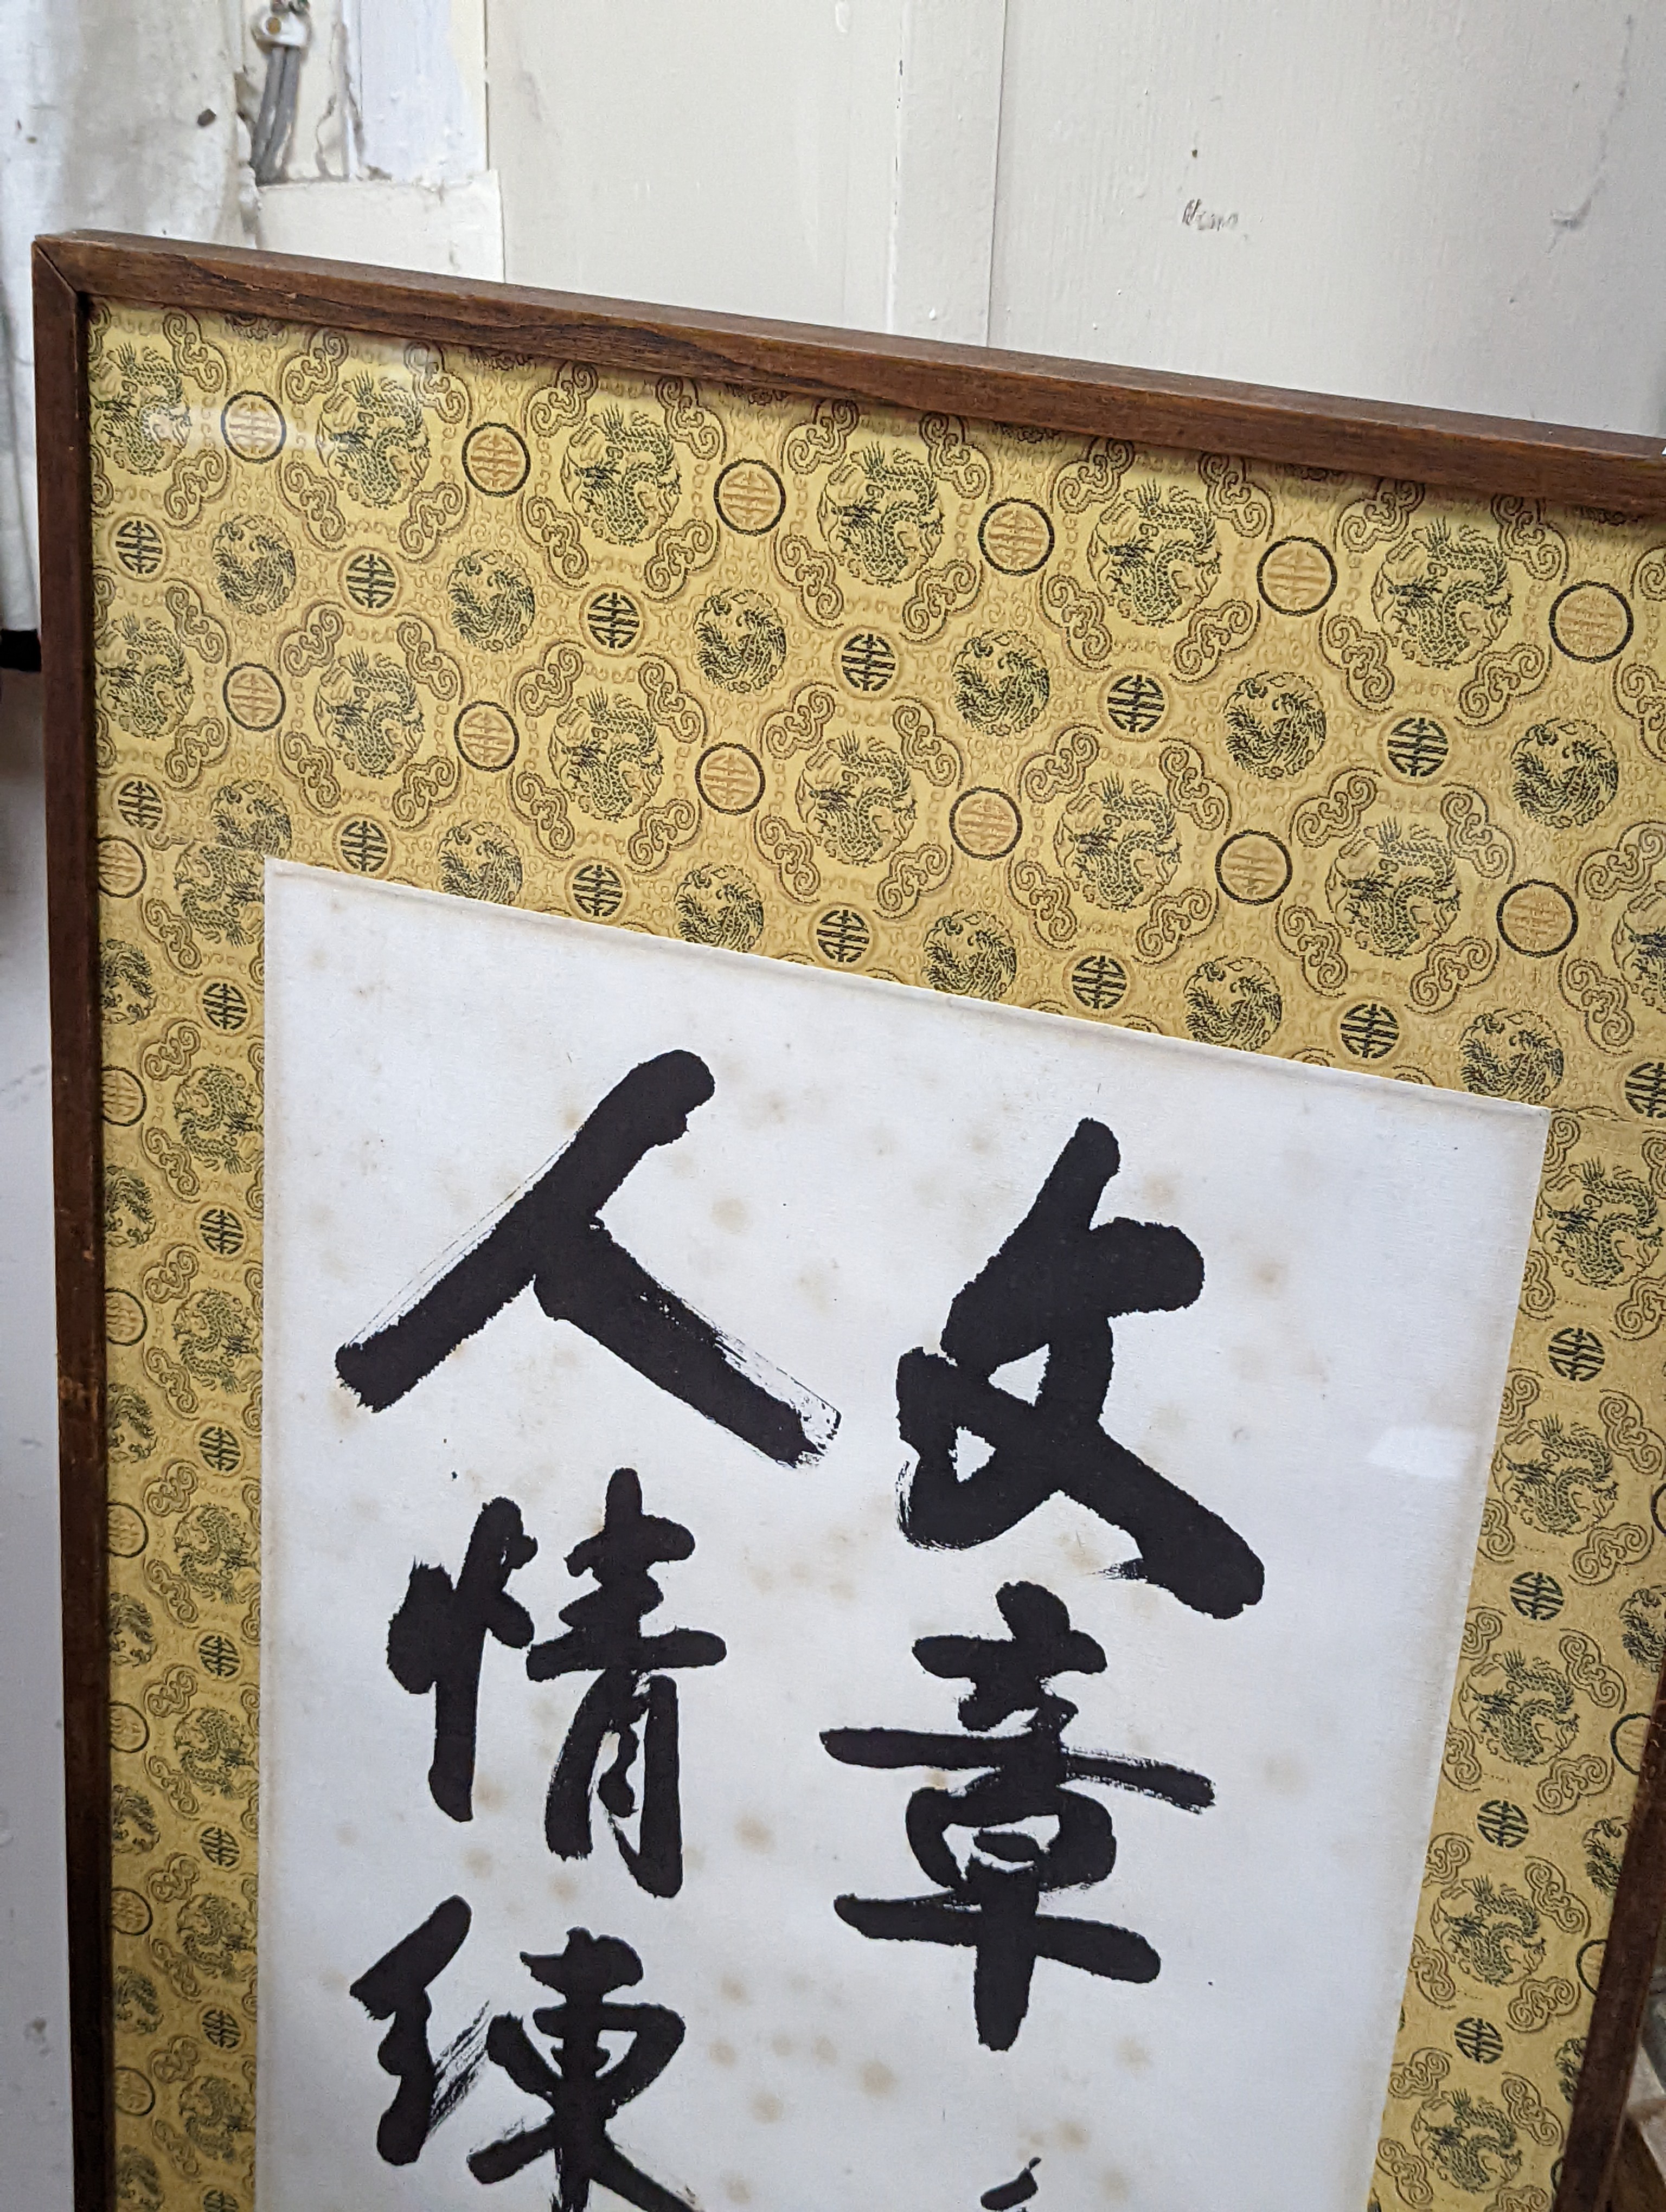 文章
人情練